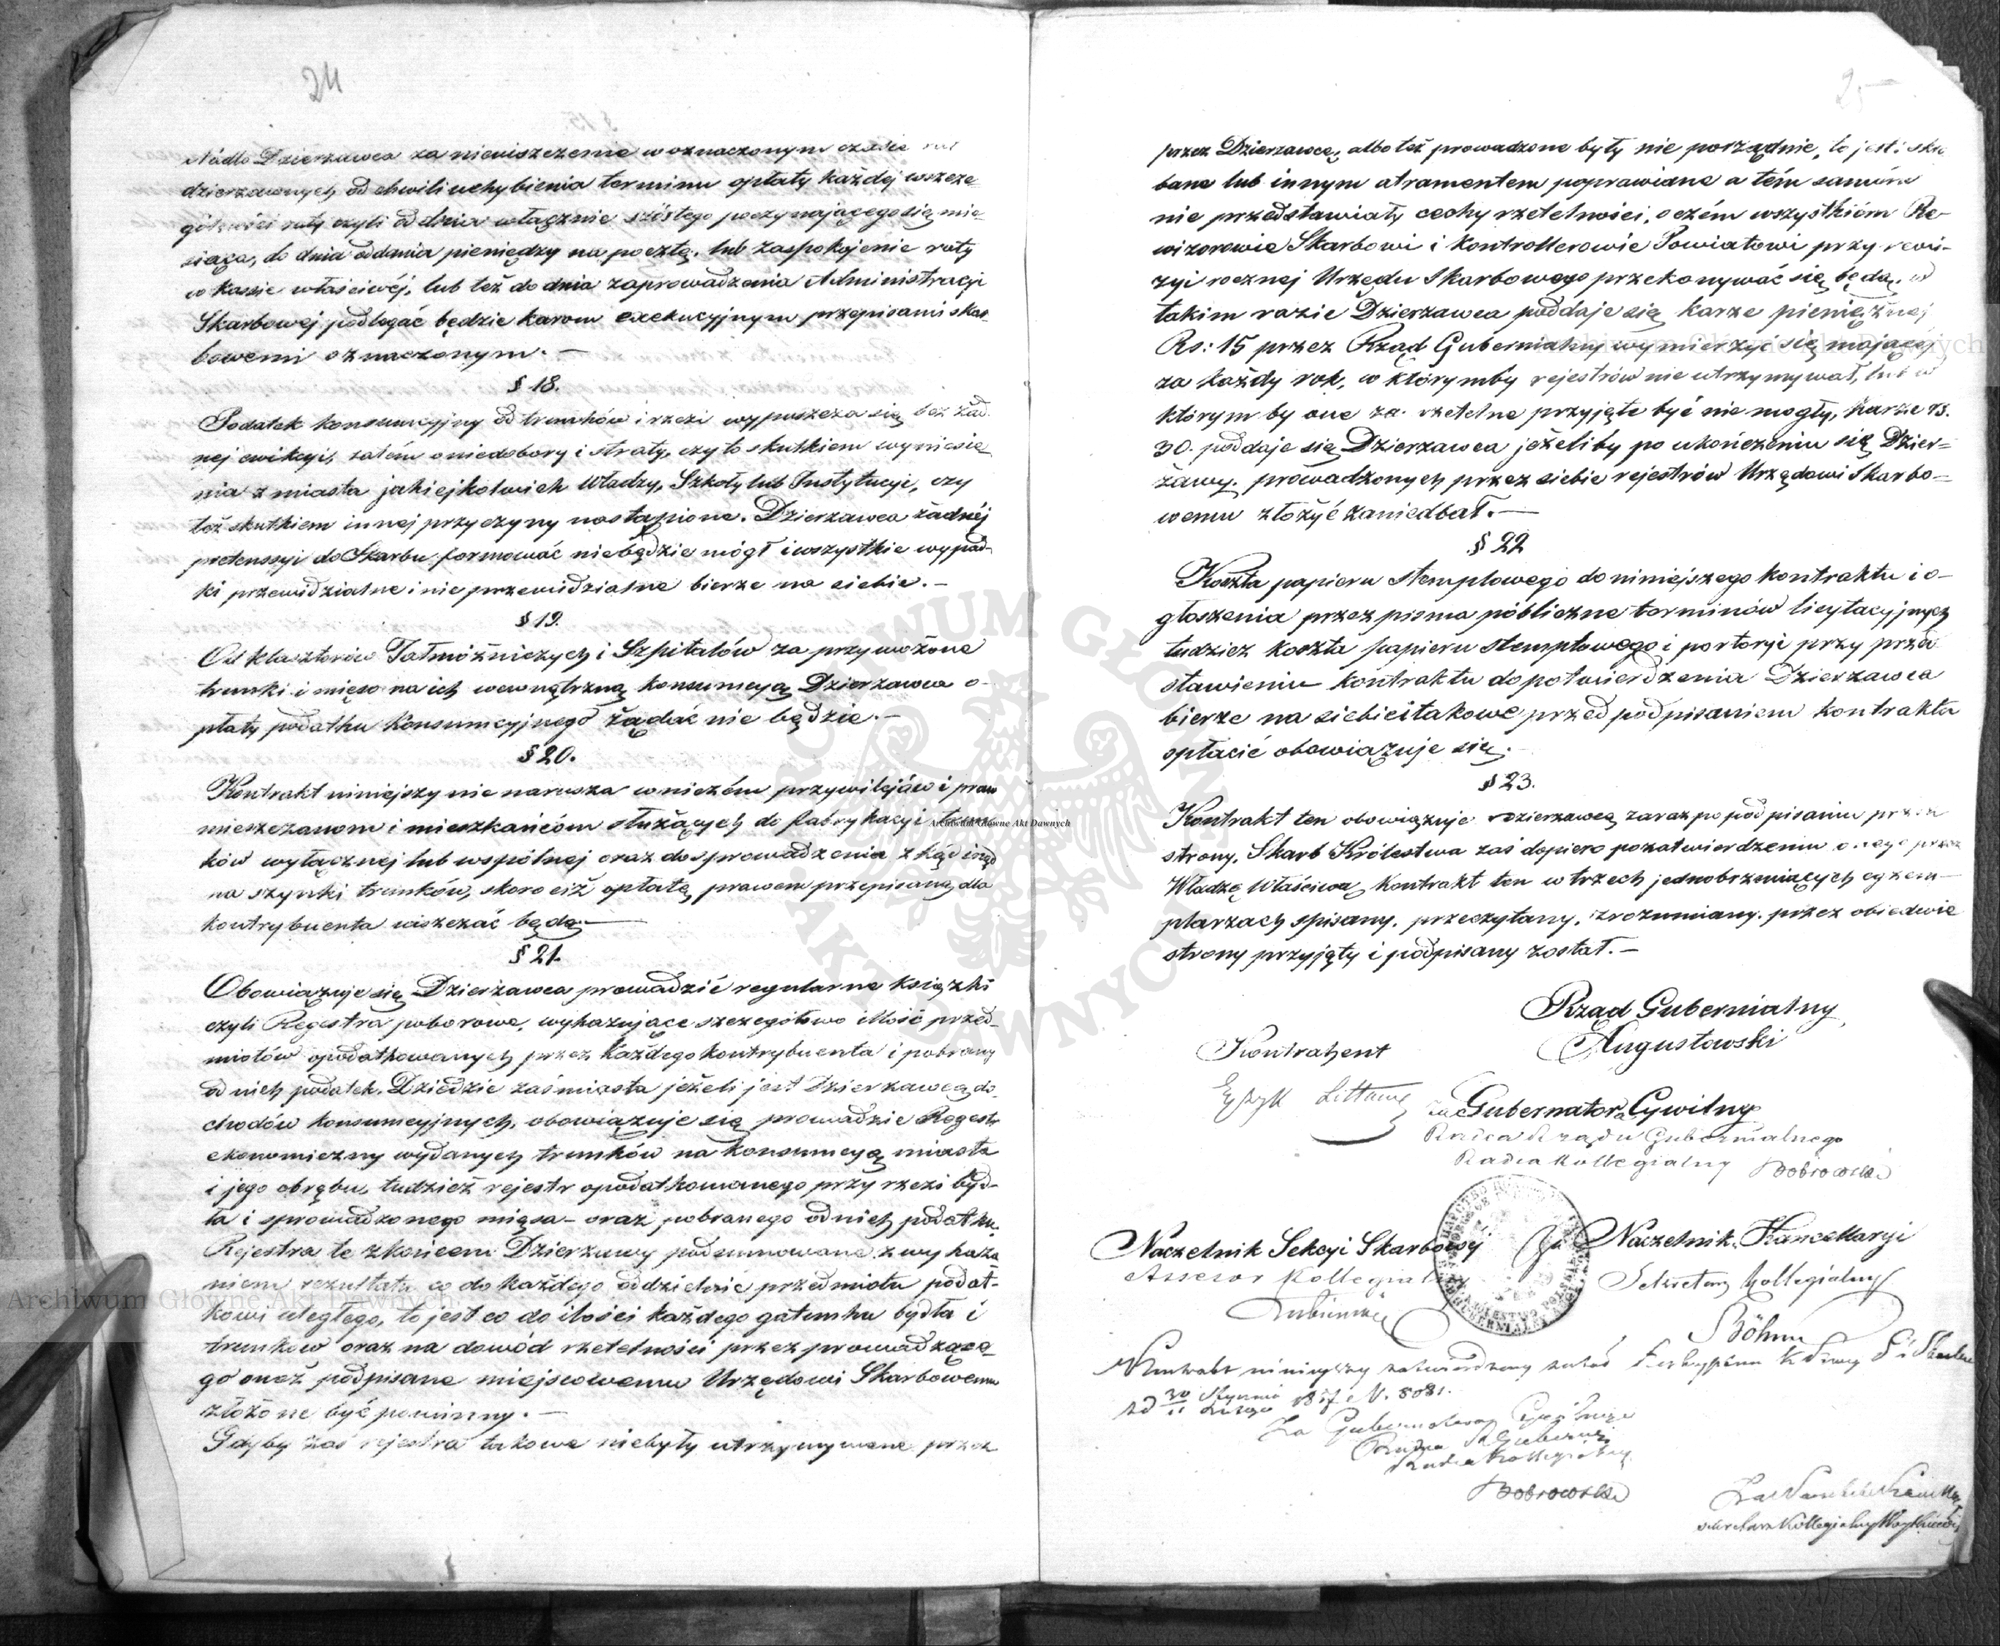 24
Nadto Dzierzawca za nieuiszczenie w oznaczonym czasie rat
dzierzawnych od chwili uchybienia terminu opłaty każdej wszcze
gólności raty czyli od dnia włącznie szóstego poczynającego się mie
siąca, do dnia oddania pieniędzy na pocztę, lub zaspokojenie raty
w kassie właściwéj, lub też do dnia zaprowadzenia Administracyi
Skarbowej, podlegać będzie karom exekucyjnym przepisami skar
bowemi oznaczonym. —
§ 18.
Podatek konsumcyjny od trunków i rzezi wypuszcza się bez żad
nej ewikcyi, zatém o niedobory i straty, czy to skutkiem wyniesie
nia z miasta jakiejkolwiek Władzy, Szkoły lub Instytucyi, czy
też skutkiem innej przyczyny nastąpione, Dzierzawca żadnéj
pretensyi do Skarbu formować niebędzie mógł i wszystkie wypad-
ki przewidzialne i nie przewidzialne bierze na siebie. —
§ 19.
Od klasztorów Jałmużniczych i Szpitalów za przywożone
trunki i mięso na ich wewnętrzną konsumcyą Dzierzawca o-
płaty podatku konsumcyjnego żądać nie będzie. —
§ 20.
Kontrakt niniejszy nie narusza w niczém przywilejów i praw
mieszczanom i mieszkańcom służących do fabrykacyi trun-
ków wyłącznej lub wspólnej oraz do sprowadzenia z kąd inąd
na szynki trunków, skoro ciż opłatę prawem przepisaną dla
kontrybuenta uiszczać będą. —
§ 21.
Obowiązuje się Dzierzawca prowadzić regularne książki
czyli Regestra poborowe, wykazujące szczegółowo illość przed-
miotów opodatkowanych przez każdego kontrybuenta i pobrany
od nich podatek. Dziedzic zaś miasta jeżeli jest Dzierzawcą do-
chodów konsumcyjnych, obowiązuje się prowadzić Regestr
ekonomiczny wydanych trunków na konsumcyą miasta
i jego obrębu, tudzież rejestr opodatkowanego przy rzezi byd-
ła i sprowadzonego mięsa — oraz pobranego od nich podatku.
Rejestra te z końcem Dzierzawy podsumowane z wykaza
niem rezultatu co do każdego oddzielnie przedmiotu podat-
kowi uległego, to jest co do ilości każdego gatunku bydła i
trunków oraz na dowód rzetelności przez prowadzące-
go oneż podpisane miejscowemu Urzędowi Skarbowemu
złożone być powinny. —
Gdyby zaś rejestra takowe niebyły utrzymywane przez
25
przez Dzierzawcę, albo też prowadzone były nie porządnie, to jest: skro
bane lub innym atramentem poprawiane a tém samém
nie przedstawiały cechy rzetelności, o czém wszystkiém Re-
wizorowie Skarbowi i Kontrollerowie Powiatowi przy rewi-
zyi rocznej Urzędu Skarbowego przekonywać się będą, w
takim razie Dzierzawca poddaje się karze pieniężnej
Rs: 15 przez Rząd Gubernialny wymierzyć się mającej
za każdy rok, w którymby rejestrów nie utrzymywał, lub w
którym by one za rzetelne przyjęte być nie mogły, karze rs.
30. poddaje się Dzierzawca jeżeliby po ukończeniu się Dzier-
żawy, prowadzonych przez siebie rejestrów Urzędowi Skarbo-
wemu złożyć zaniedbał. —
§ 22
Koszta papieru stemplowego do niniejszego kontraktu i o-
głoszenia przez pisma publiczne terminów licytacyjnych
tudzież koszta papieru stemplowego i portoryi przy przed
stawieniu kontraktu do potwierdzenia Dzierzawca
bierze na siebie i takowe przed podpisaniem kontraktu
opłacić obowiązuje się. —
§ 23.
Kontrakt ten obowiązuje dzierzawcę zaraz po podpisaniu przez
strony, Skarb Królestwa zaś dopiero po zatwierdzeniu onego przez
Władzę Właściwą, kontrakt ten w trzech jednobrzmiących egzem-
plarzach spisany, przeczytany, zrozumiany, przez obiedwie
strony przyjęty i podpisany został. —
Rząd Gubernialny
Augustowski
Kontrahent
za Gubernatora Cywilny
Radca Rządu Gubernialnego
Radca Kollegialny Dobrowolski
Naczelnik Sekcyi Skarbowej
Assesor Kollegialny
Za Naczelnik Kancellaryi
Sekretarz Kollegialny
Böhm
Kontrakt niniejszy zatwierdzony został
z d 30 Stycznia / 11 Lutego 1857 r N. 8081.
Za Gubernatora Cywilnego
Radca R. Gubernial
Radca Kollegialny
Dobrowolski
Za Naczelnika Kancellaryi
Sekretarz Kollegialny
Archiwum Główne Akt Dawnych